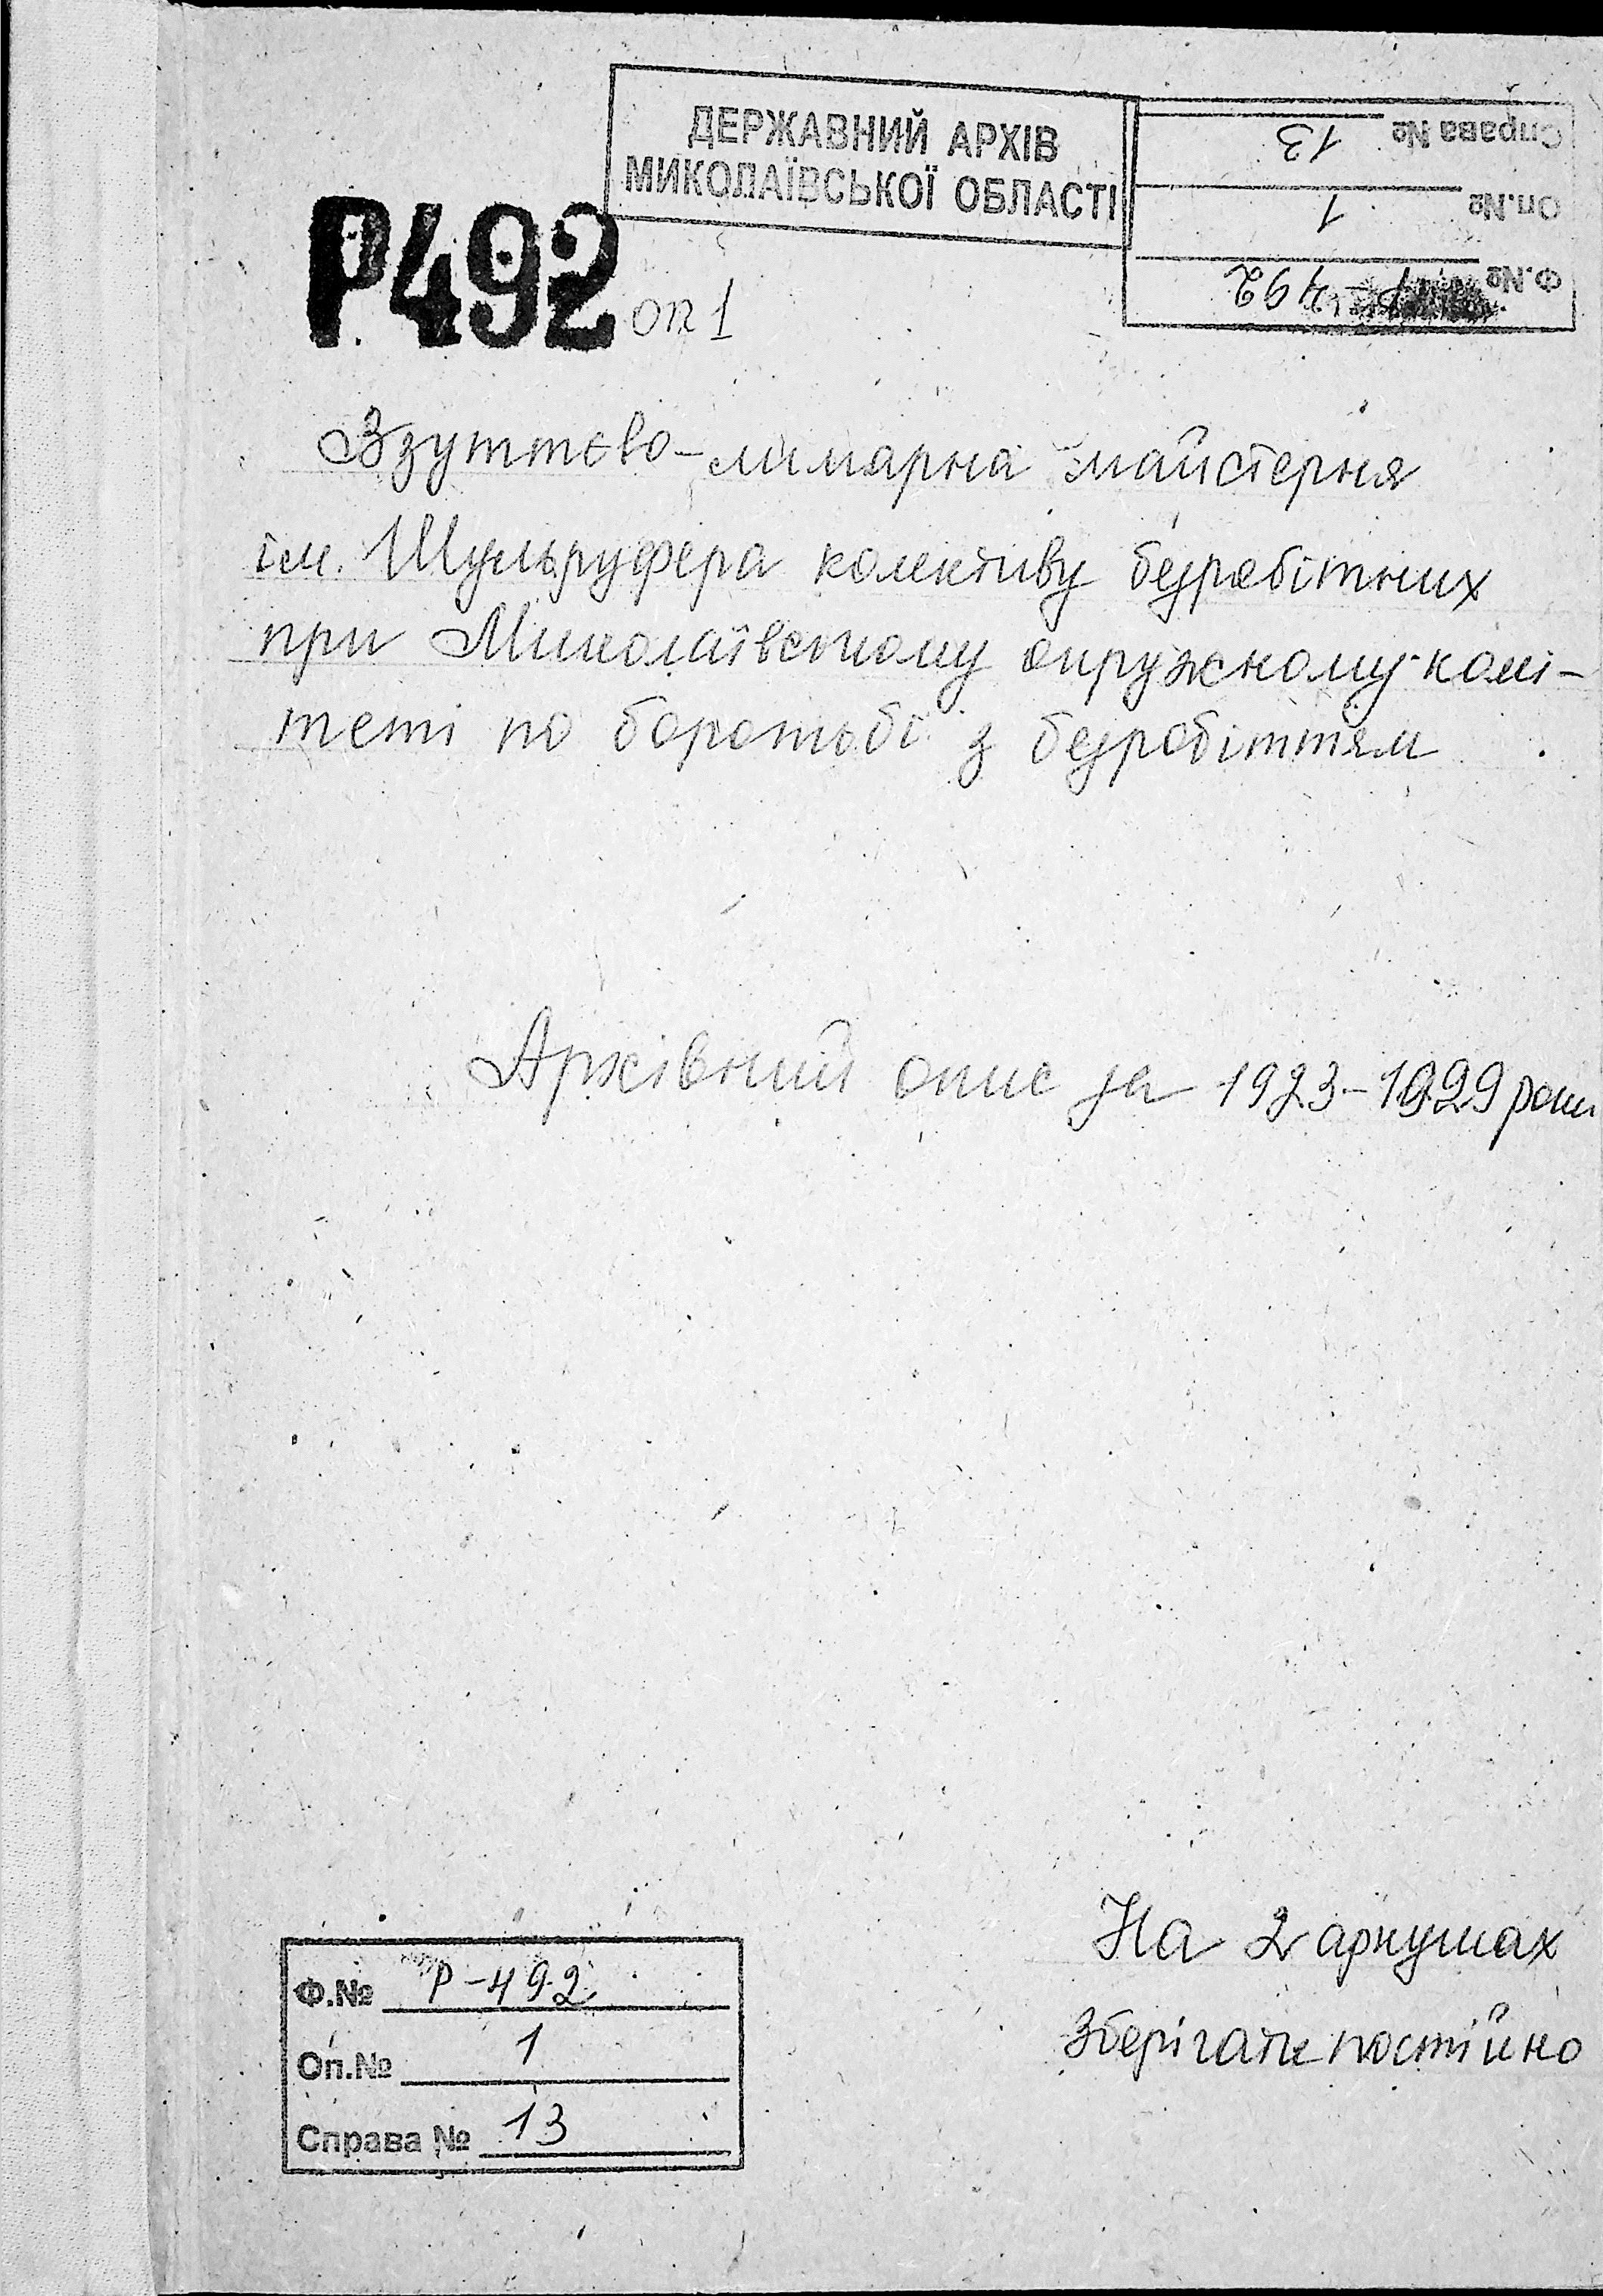 ДЕРЖАВНИЙ АРХІВ
МИКОЛАЇВСЬКОЇ ОБЛАСТІ
Справа № 13
Оп.№ 1
Ф.№ Р-492
Р492 оп 1
Взуттєво-лимарна майстерня
ім. Шульруфера колективу безробітних
при Миколаївському окружному комі-
теті по боротьбі з безробіттям
Архівний опис за 1923-1929 роки
На 2 аркушах
Зберігати постійно
Ф.№ Р-492
Оп.№ 1
Справа № 13